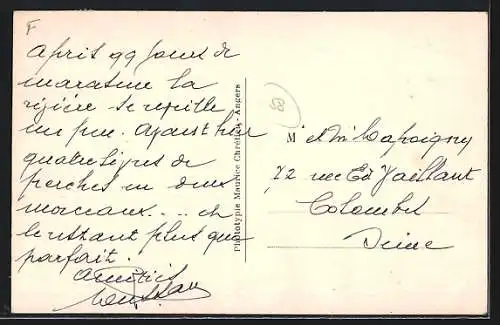 F
April 99 jours de
marasme la
rizière se réveille
un peu. Ayant
quatre lignes de
perches en deux
morceaux... et
le restant plus que
parfait.
Amitiés
53
Phototypie Maurice Chrétien - Angers
M et Mme Lapoigny
72 rue Ed Vaillant
Colombes
Seine